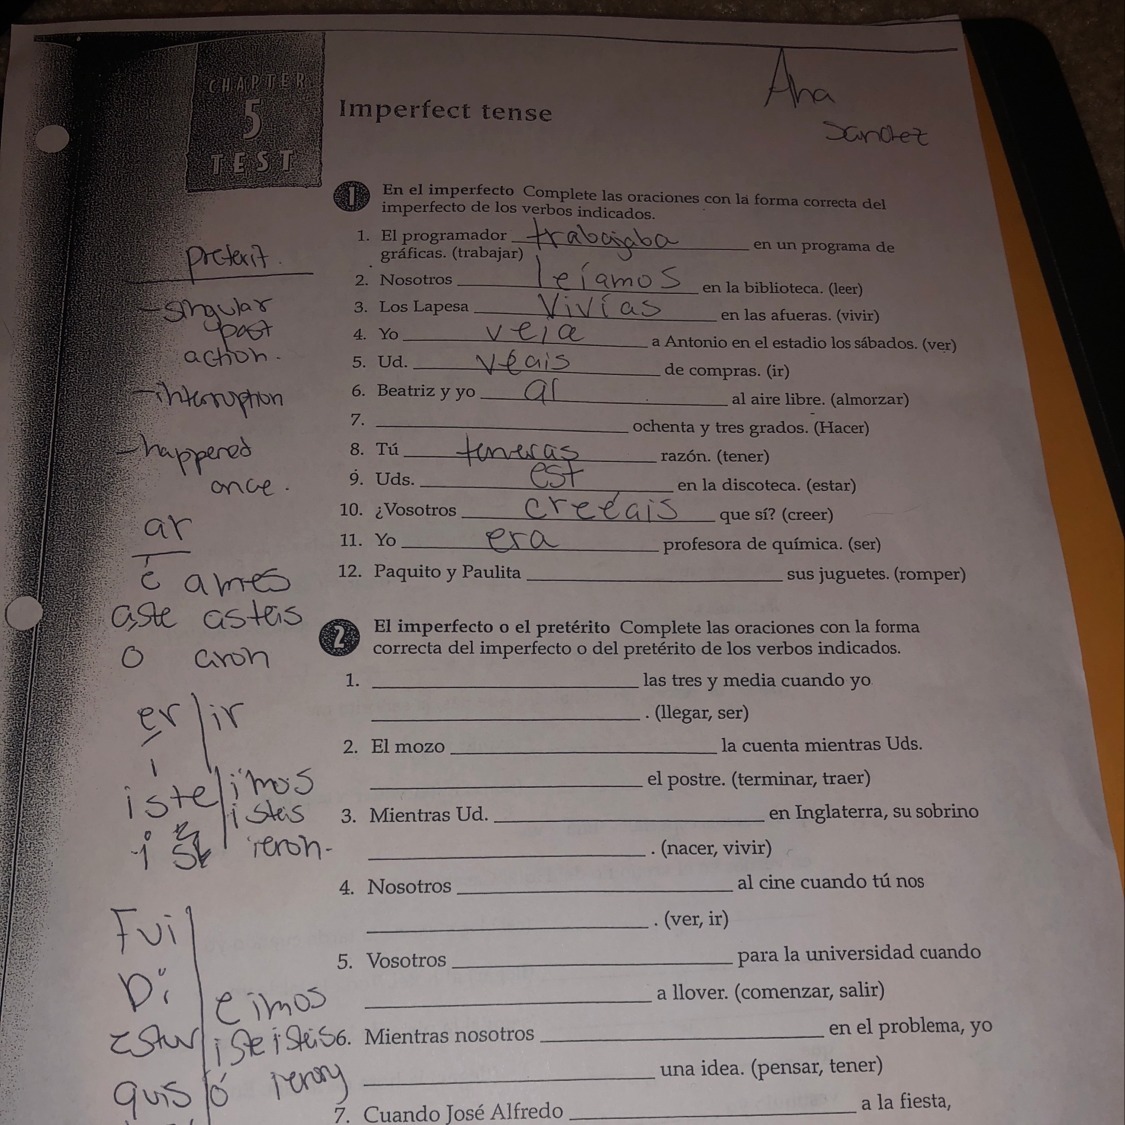 CHAPTER
5
TEST
Imperfect tense
Ana
Sanchez
1 En el imperfecto Complete las oraciones con la forma correcta del
imperfecto de los verbos indicados.
1. El programador trabajaba en un programa de
gráficas. (trabajar)
2. Nosotros leíamos en la biblioteca. (leer)
3. Los Lapesa Vivías en las afueras. (vivir)
4. Yo veia a Antonio en el estadio los sábados. (ver)
5. Ud. véais de compras. (ir)
6. Beatriz y yo al al aire libre. (almorzar)
7. ochenta y tres grados. (Hacer)
8. Tú teneras razón. (tener)
9. Uds. est en la discoteca. (estar)
10. ¿Vosotros creéais que sí? (creer)
11. Yo era profesora de química. (ser)
12. Paquito y Paulita sus juguetes. (romper)
2 El imperfecto o el pretérito Complete las oraciones con la forma
correcta del imperfecto o del pretérito de los verbos indicados.
1. las tres y media cuando yo
. (llegar, ser)
2. El mozo la cuenta mientras Uds.
el postre. (terminar, traer)
3. Mientras Ud. en Inglaterra, su sobrino
. (nacer, vivir)
4. Nosotros al cine cuando tú nos
. (ver, ir)
5. Vosotros para la universidad cuando
a llover. (comenzar, salir)
6. Mientras nosotros en el problema, yo
una idea. (pensar, tener)
7. Cuando José Alfredo a la fiesta,
preterit.
-singular
past
action.
-interruption
-happened
once.
ar
é ames
aste asteis
o aron
er/ir
í
iste imos
isteis
ieron-
Fui
Di
Estuv
quis
e imos
iste isteis
ó